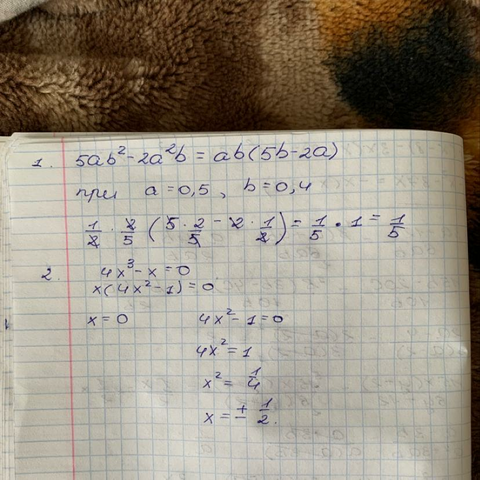 1. 5ab² - 2a²b = ab(5b - 2a)
при a = 0,5, b = 0,4
1/2 · 2/5 (5 · 2/5 - 2 · 1/2) = 1/5 · 1 = 1/5
2. 4x³ - x = 0
x(4x² - 1) = 0
x = 0 4x² - 1 = 0
4x² = 1
x² = 1/4
x = ± 1/2.